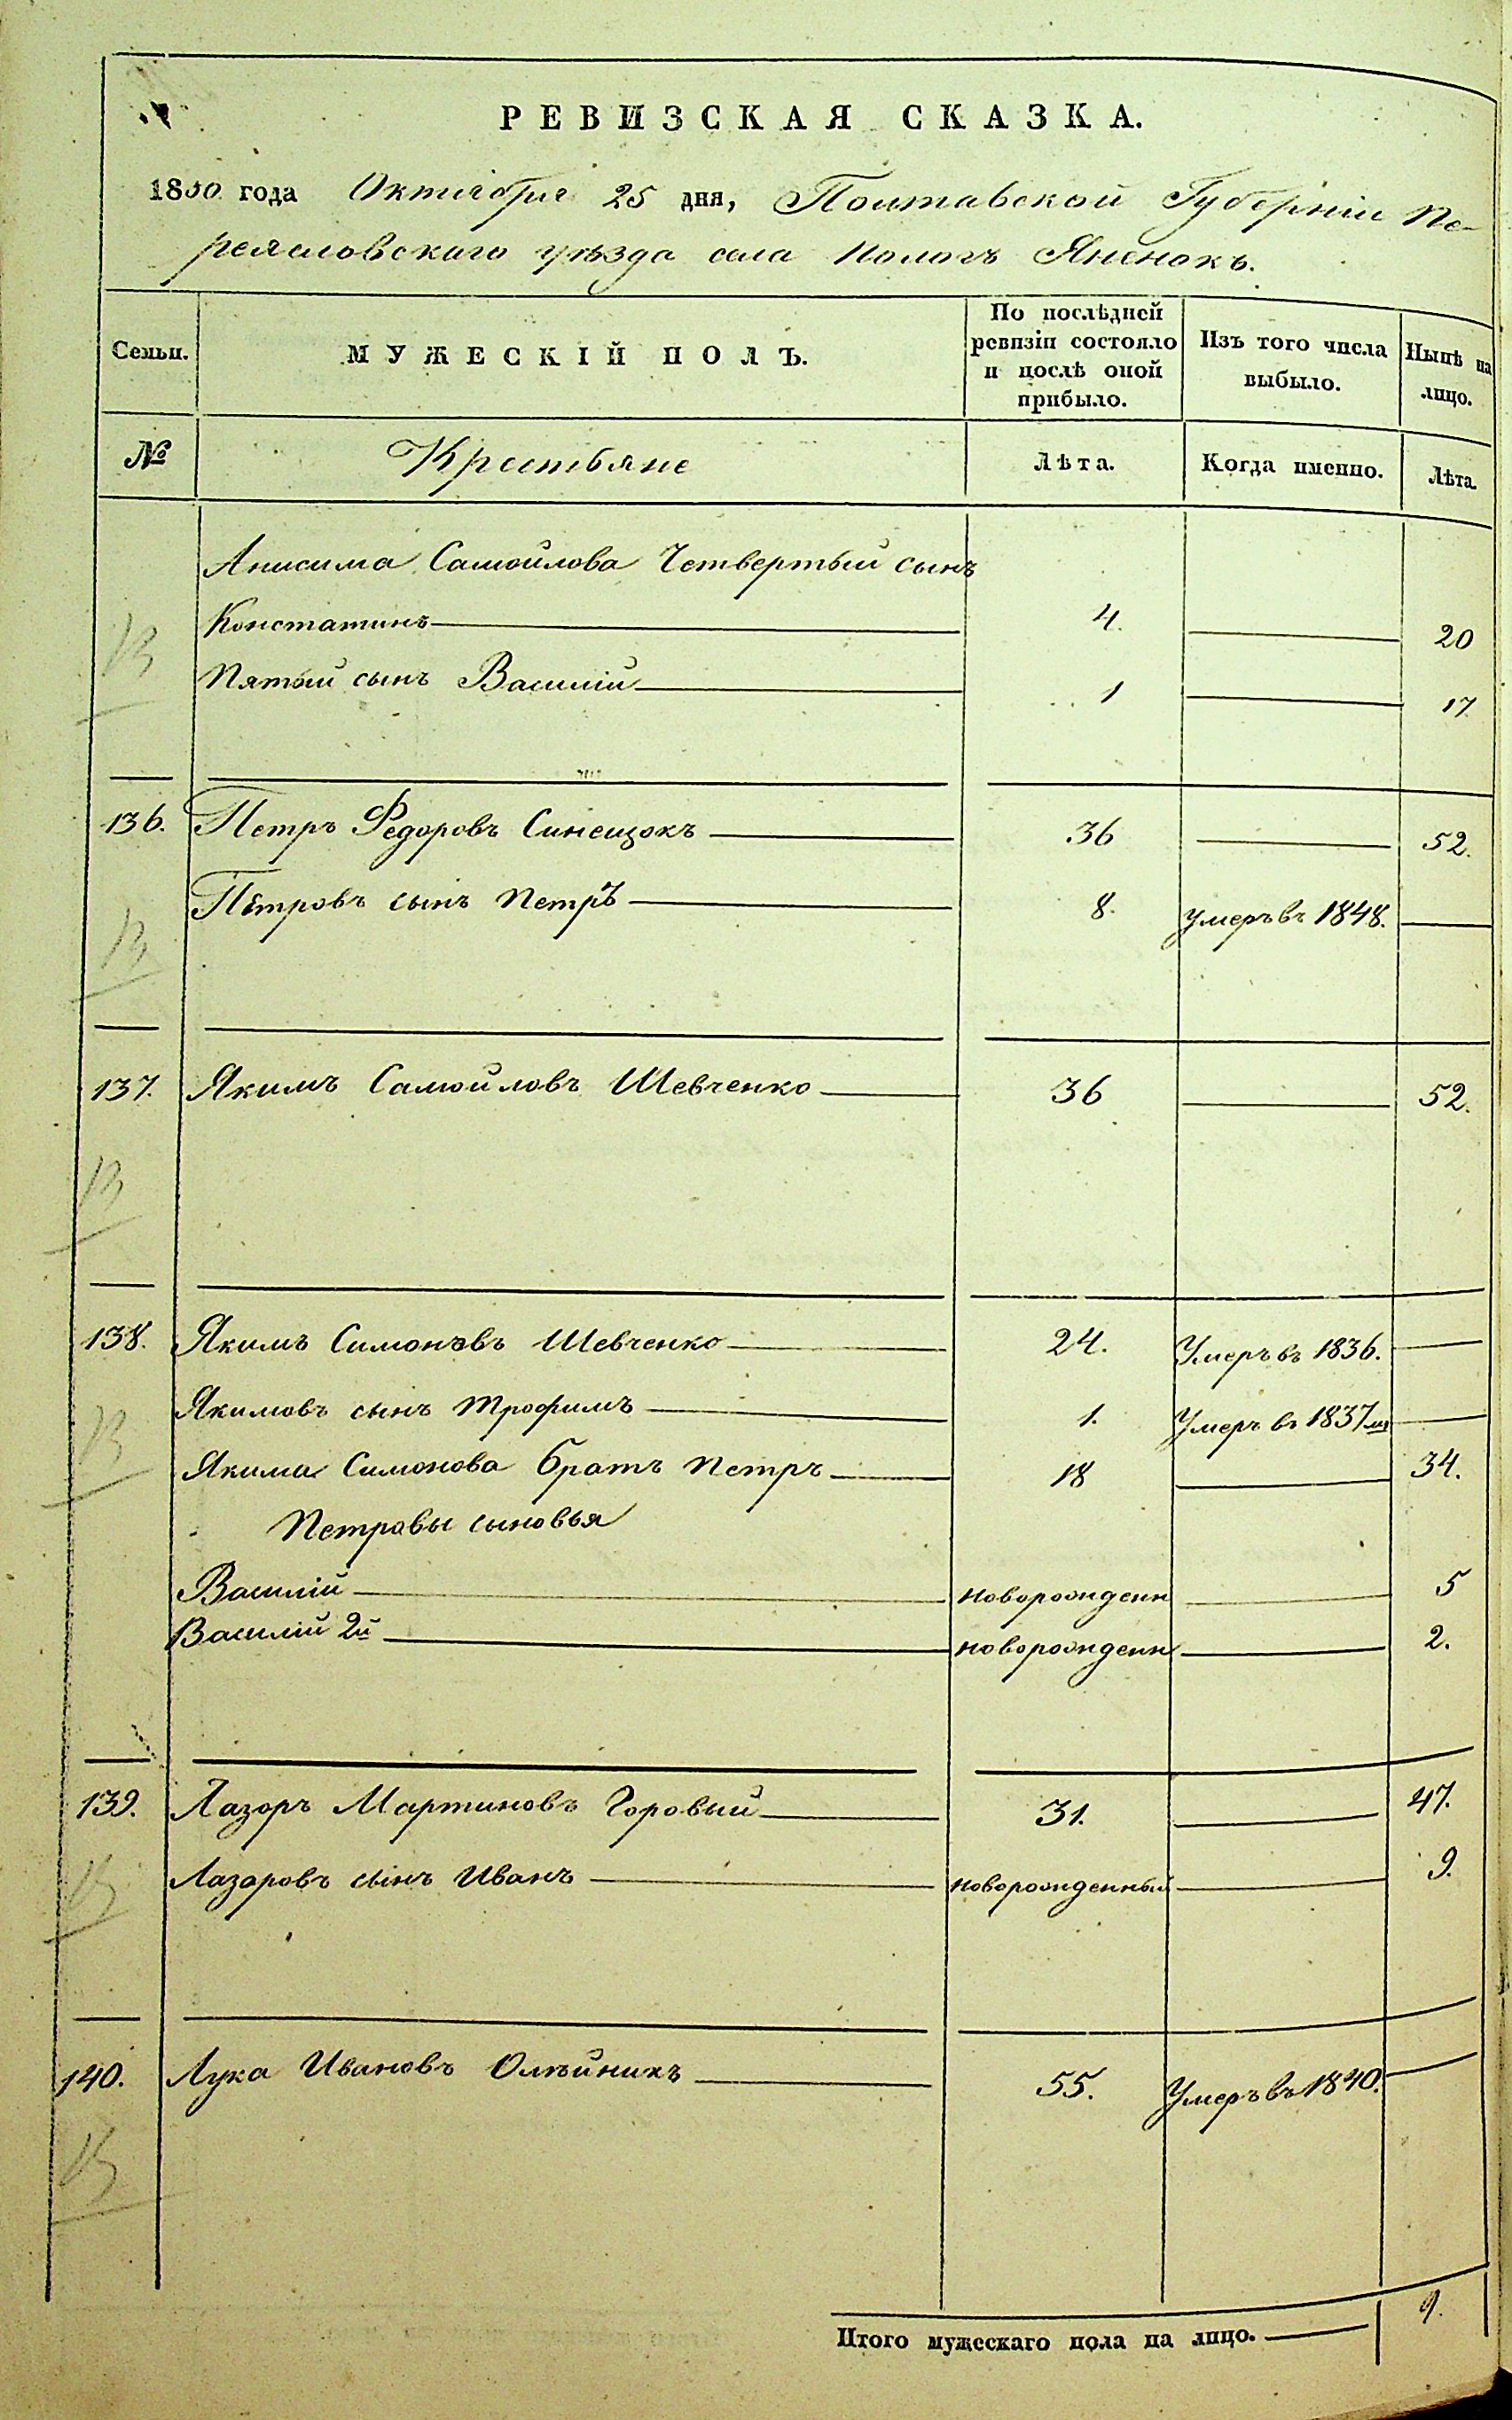 РЕВИЗСКАЯ СКАЗКА.
1850 года Октября 25 дня, Полтавской Губерніи Пе-
реяславского уѣзда села Пологъ Яненокъ.
Семьи.
МУЖЕСКІЙ ПОЛЪ.
По послѣдней
ревизіи состояло
и послѣ оной
прибыло.
Изъ того числа
выбыло.
Нынѣ на
лицо.
№
Крестьяне
Лѣта.
Когда именно.
Лѣта.
Анисима Самойлова Четвертый сынъ
Констатинъ 4. 20
Пятый сынъ Василій 1 17
136. Петръ Федоровъ Синещокъ 36 52.
Петровъ сынъ Петръ 8. Умеръ въ 1848.
137. Якимъ Самойловъ Шевченко 36 52.
138. Якимъ Симоновъ Шевченко 24. Умеръ въ 1836.
Якимовъ сынъ Трофимъ 1. Умеръ въ 1837
Якима Симонова братъ Петръ 18 34.
Петровы сыновья
Василій новорожден 5
Василій 2й новорожден 2.
139. Лазоръ Мартиновъ Горовый 31. 47.
Лазоровъ сынъ Иванъ новорожденный 9.
140. Лука Ивановъ Олѣйникъ 55. Умеръ въ 1840.
Итого мужескаго пола на лицо. 9.